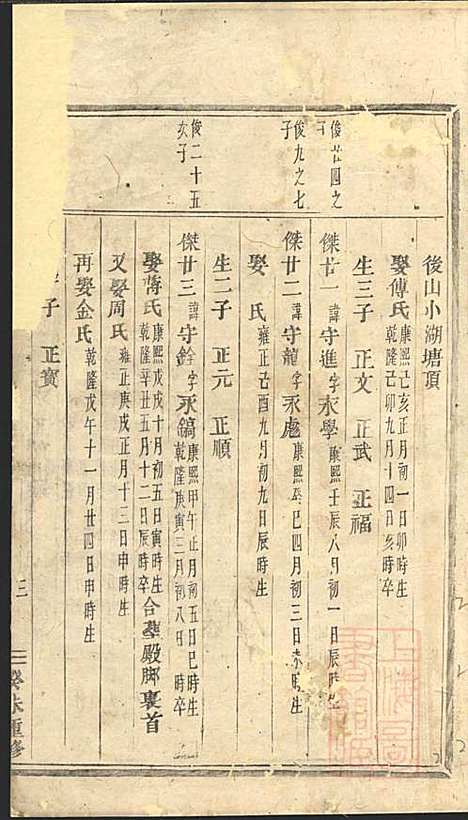 後山小湖塘頂
娶傅氏 康熙己亥正月初一日卯時生
乾隆己卯九月十四日亥時卒
生三子 正文 正武 正福
俊廿四之子
傑廿一 諱守進字永學 康熙壬辰八月初一日辰時生
俊九之七子
傑廿二 諱守龍字永 康熙癸巳四月初三日未時生
娶 氏 雍正己酉九月初九日辰時生
生二子 正元 正順
俊二十五次子
傑廿三 諱守銓字永鎬 康熙甲午正月初五日巳時生
乾隆庚寅三月初八日 時卒
娶蔣氏 康熙戊戌十月初五日寅時生
乾隆辛丑五月十二日辰時卒 合墓殿脚裏首
又娶周氏 雍正庚戌正月十三日申時生
再娶金氏 乾隆戊午十一月廿四日申時生
子 正寶
三
癸未重修